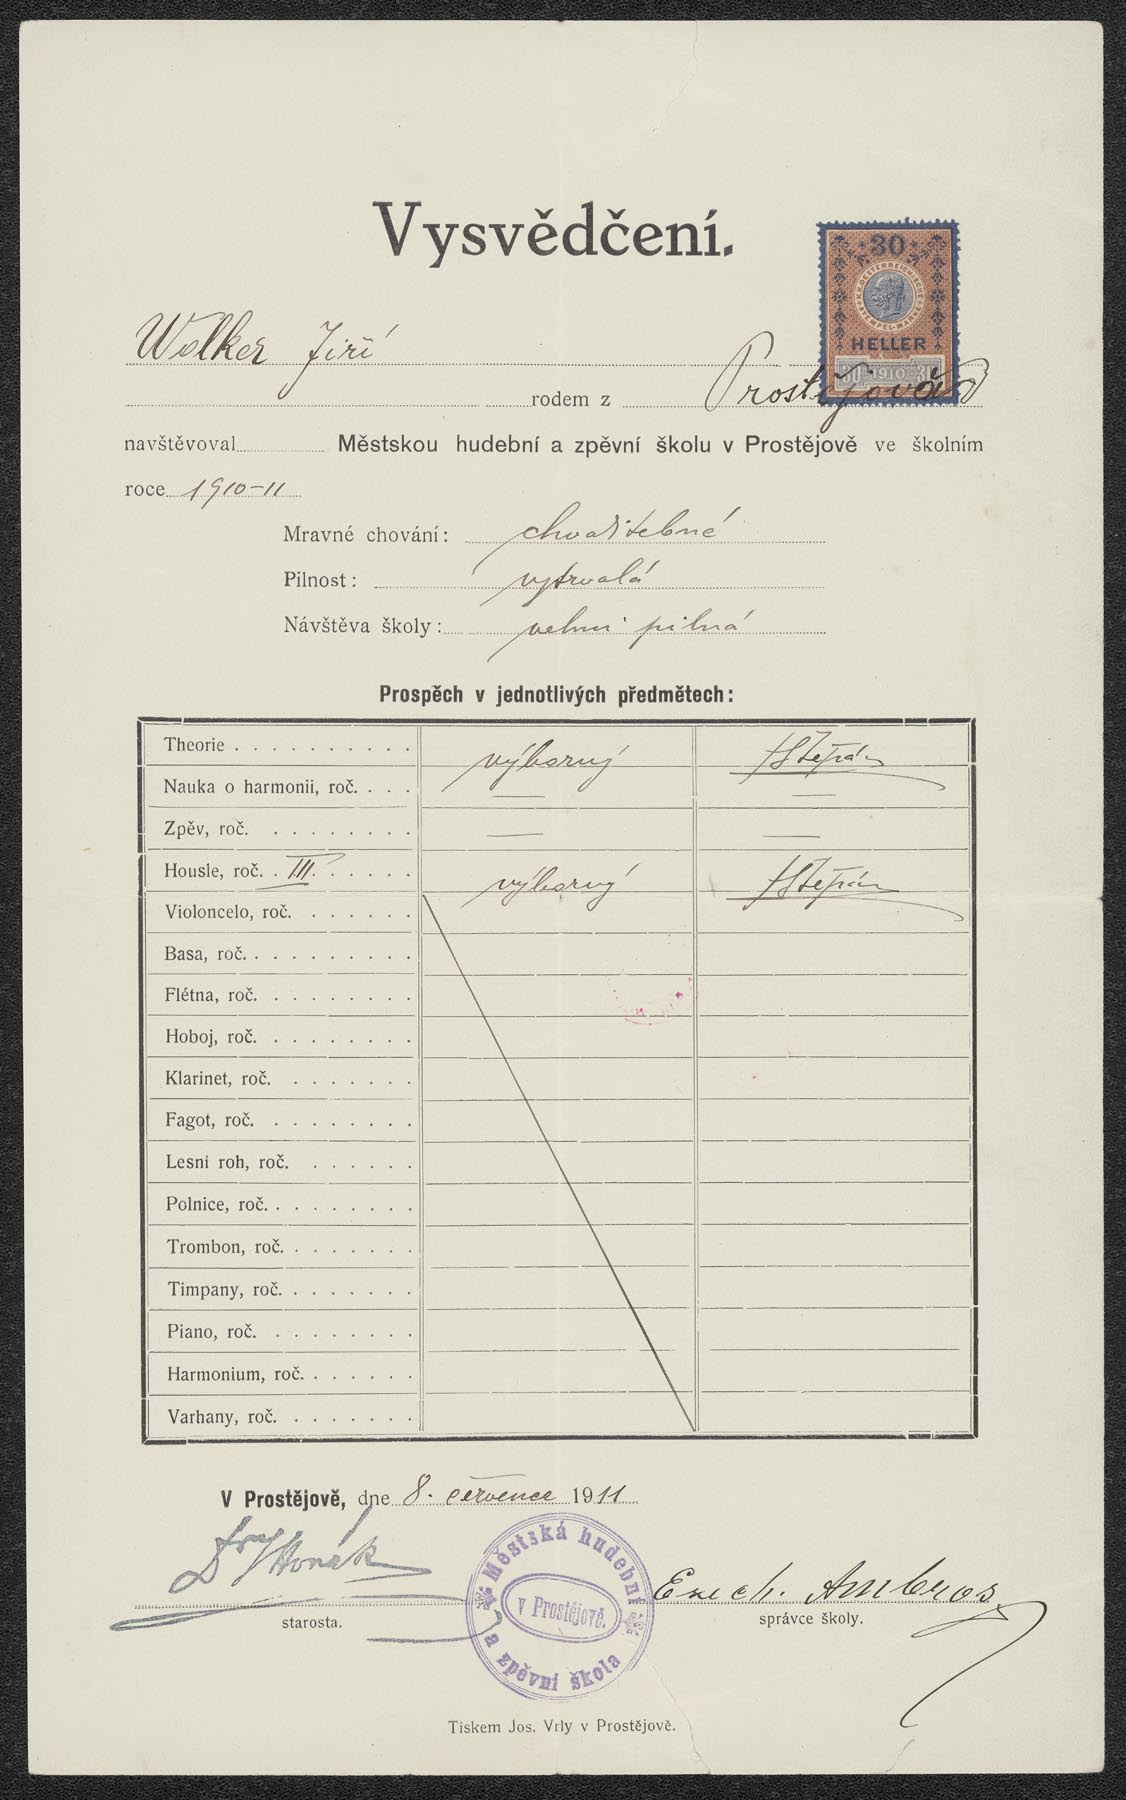 Vysvědčení.
30
K.K. OESTERREICHISCHE STEMPEL-MARKE
HELLER
30 1910 30
Wolker Jiří
rodem z Prostějova
navštěvoval Městskou hudební a zpěvní školu v Prostějově ve školním
roce 1910-11
Mravné chování: chvalitebné
Pilnost: vytrvalá
Návštěva školy: velmi pilná
Prospěch v jednotlivých předmětech:
Theorie . . . . . . . . . . výborný HŠtěpán
Nauka o harmonii, roč. . . . — —
Zpěv, roč. . . . . . . . . — —
Housle, roč. . III. . . . . . výborný HŠtěpán
Violoncelo, roč. . . . . . .
Basa, roč. . . . . . . . . .
Flétna, roč. . . . . . . . .
Hoboj, roč. . . . . . . . .
Klarinet, roč. . . . . . . .
Fagot, roč. . . . . . . . .
Lesní roh, roč. . . . . . .
Polnice, roč. . . . . . . . .
Trombon, roč. . . . . . . .
Timpany, roč. . . . . . . .
Piano, roč. . . . . . . . .
Harmonium, roč. . . . . . .
Varhany, roč. . . . . . . .
V Prostějově, dne 8. července 1911
Horák
Městská hudební a zpěvní škola
v Prostějově.
Ezech. Ambros
starosta.
správce školy.
Tiskem Jos. Vrly v Prostějově.